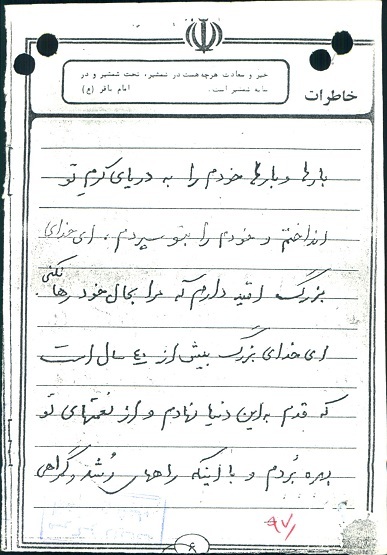 خیر و سعادت هرچه هست در شمشیر، تحت شمشیر و در
سایه شمشیر است. امام باقر (ع)
خاطرات
بارها و بارها خودم را به دریای کرم تو
انداختم و خودم را بتو سپردم، ای خدای
بزرگ امید دارم که مرا بحال خود رها نکنی.
ای خدای بزرگ بیش از ٤٠ سال است
که قدم به این دنیا نهادم و از نعمتهای تو
بهره بردم و با اینکه راههای رشد و گمراهی
۶
۹۷۱